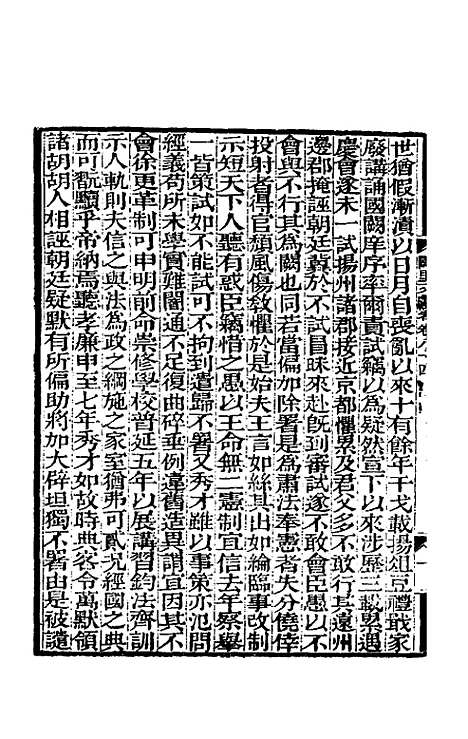 世猶假漸漬以日月自喪亂以來十有餘年干戈載揚俎豆禮戢家
廢講誦國闕庠序率爾責試竊以為疑然宣下以來涉歷三載累遇
慶會遂未一試揚州諸郡接近京都懼累及君父多不敢行其遠州
邊郡掩誣朝廷冀於不試冒昧來赴旣到審試遂不敢會臣愚以不
會與不行其為闕也同若當偏加除署是為肅法奉憲者失分僥倖
投射者得官頹風傷教懼於是始夫王言如絲其出如綸臨事改制
示短天下人聽有惑臣竊惜之愚以王命無二憲制宜信去年察舉
一皆策試如不能試可不拘到遣歸不署又秀才雖以事策亦氾問
經義苟所未學實難闇通不足復曲碎垂例違舊造異謂宜因其不
會徐更革制可申明前命崇修學校普延五年以展講習鈞法齊訓
示人軌則夫信之與法為政之綱施之家室猶弗可貳況經國之典
而可翫黷乎帝納焉聽孝廉申至七年秀才如故時典客令萬默領
諸胡胡人相誣朝廷疑默有所偏助將加大辟坦獨不署由是被譴